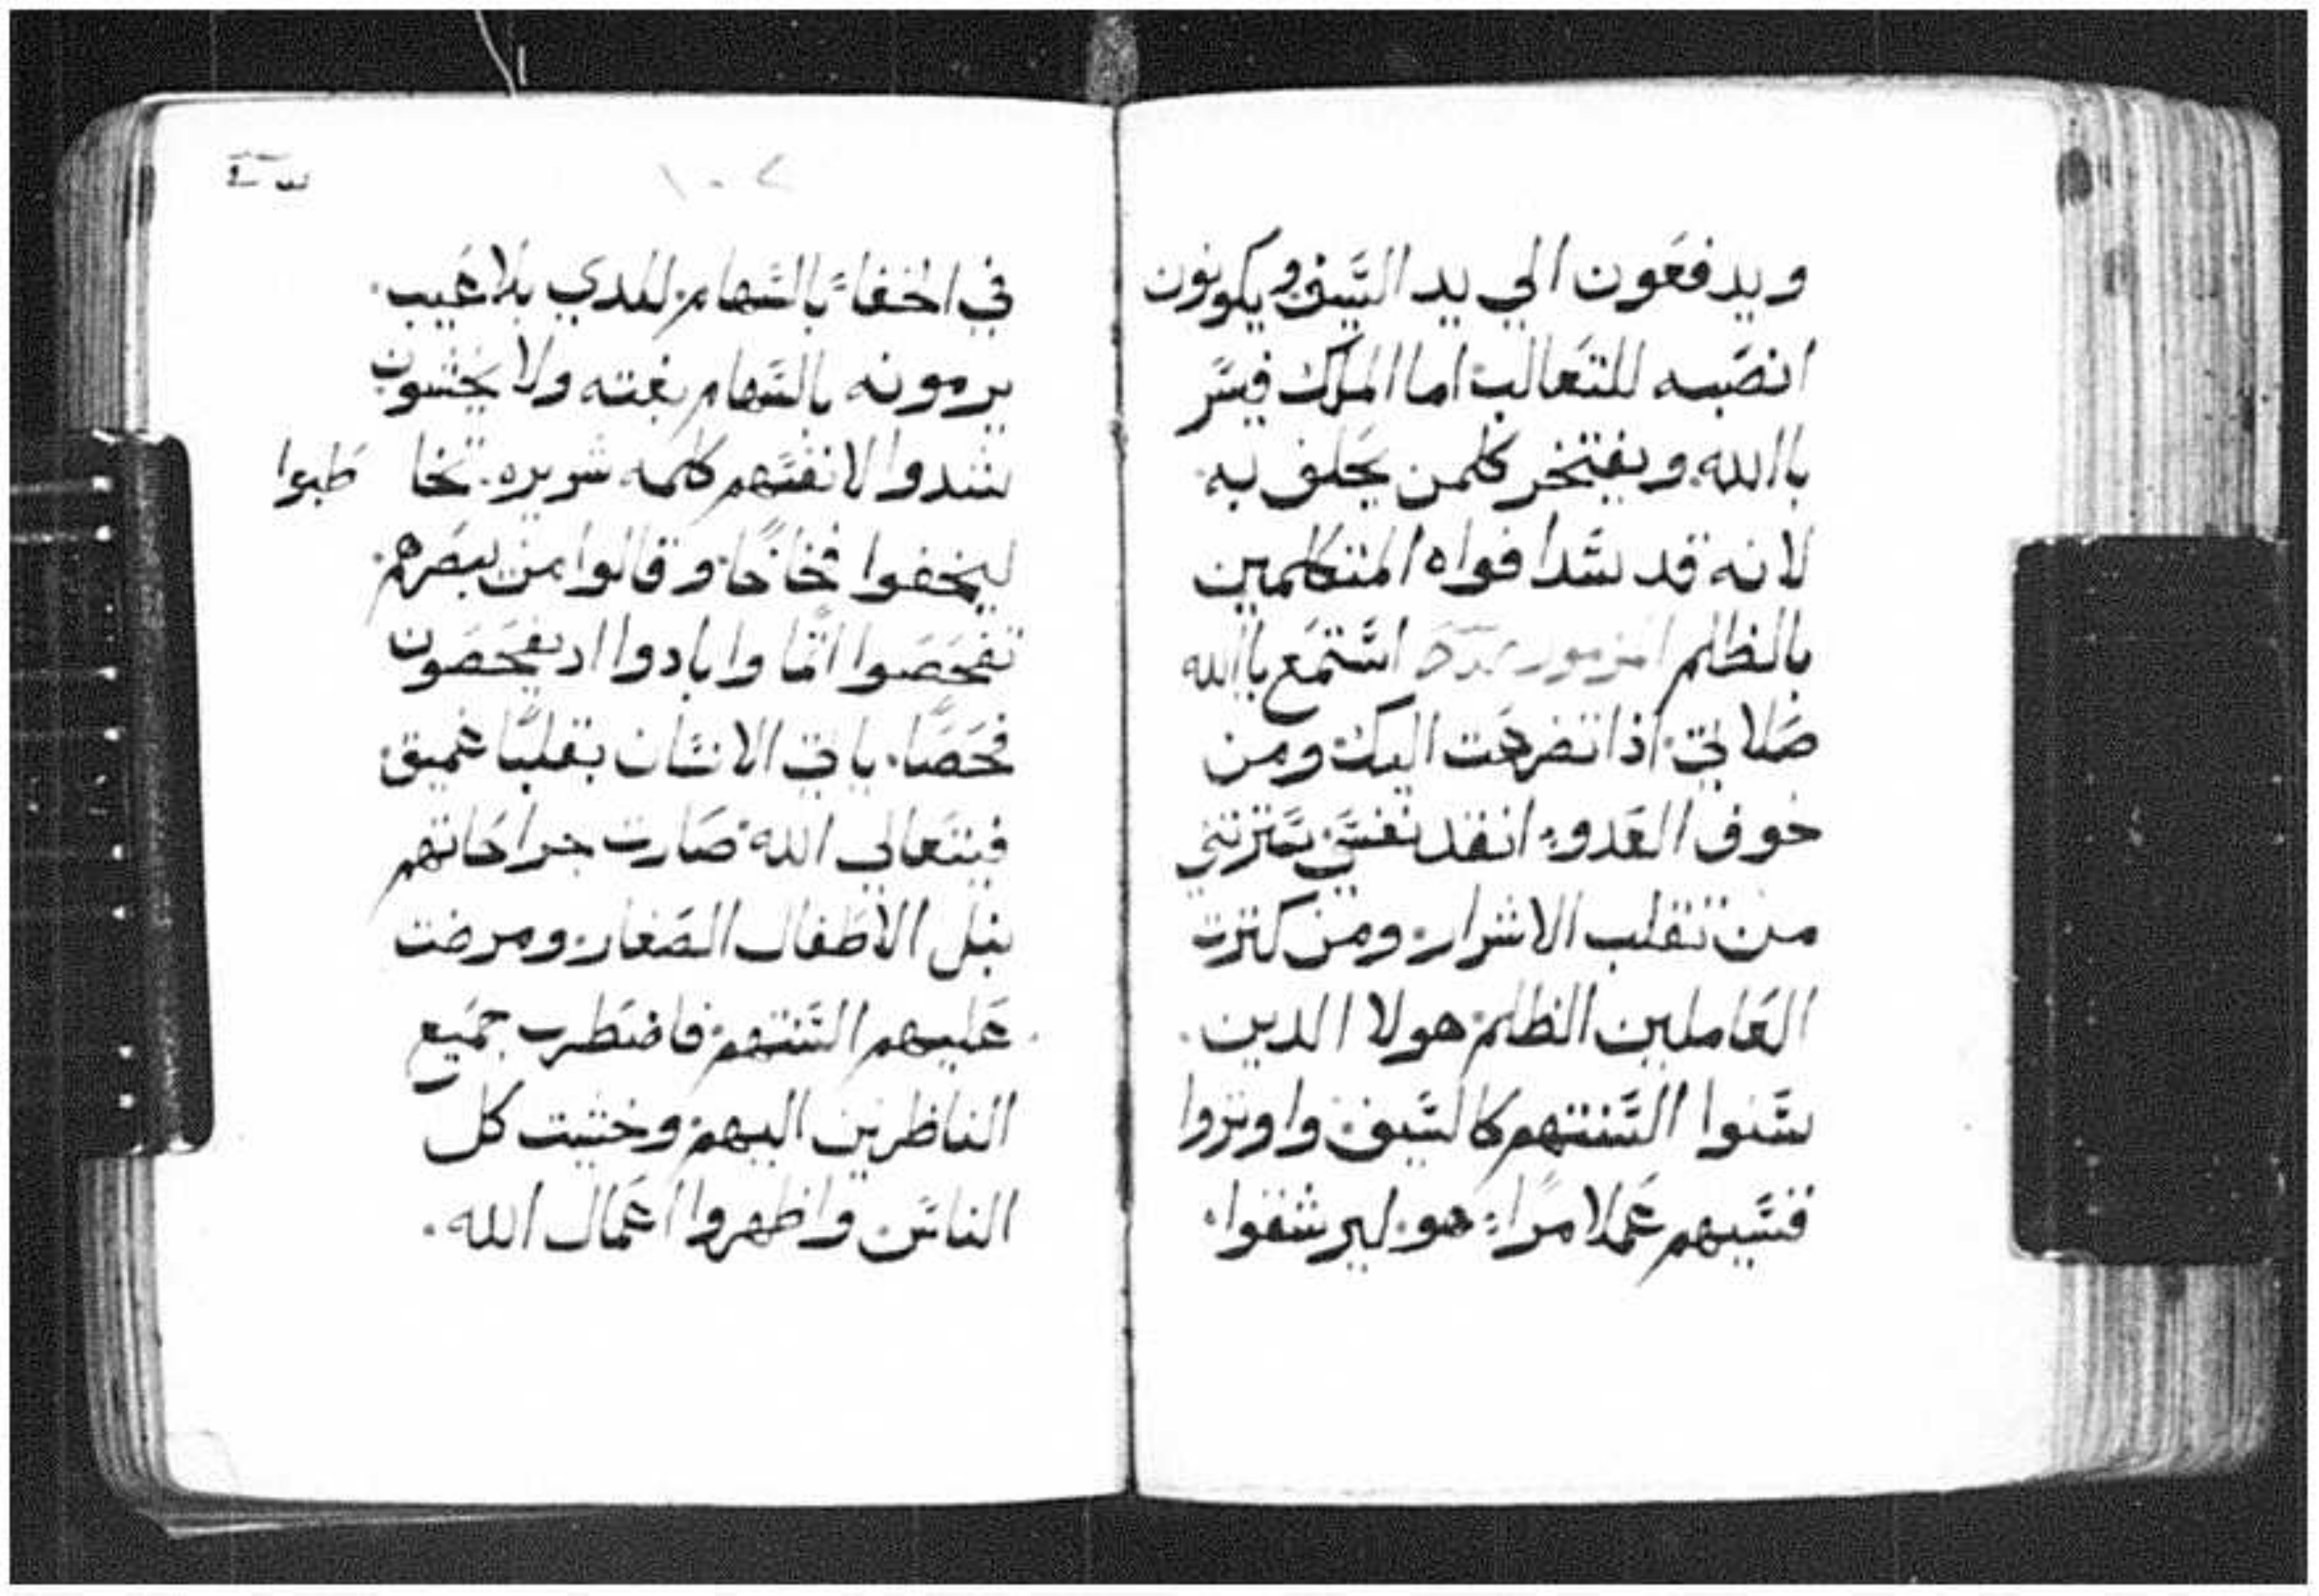 ويدفعون الي يد السيف ويكونون
انصبه للتعالب اما الملك فيسر
باالله ويفتخر كلمن يحلف به
لانه قد سدا فواه المتكلمين
بالظلم المزمور استمع ياالله
صلاتي اذا تضرعت اليك ومن
خوف العدو انقد نفسي سترتني
من تقلب الاشرار ومن كترت
العاملين الظلم هولا الدين
سنوا السنتهم كالسيف واوتروا
قسيهم عملا مرا هو ليرشقوا
١٠٧
في الخفاء بالسهام للدي بلا عيب
يرمونه بالسهام بغته ولا يخشون
شدوا لانفسهم كلمه شريره تخا طبوا
ليخفوا فخاخا وقالوا من يبصرهم
تفحصوا اتما وابادوا اد يفحصون
فحصا ياتي الانسان بقلبا عميق
فيتعالي الله صارت جراحاتهم
بنبل الاطفال الصغار ومرضت
عليهم السنتهم فاضطرب جميع
الناظرين اليهم وخشيت كل
الناس واظهروا اعمال الله